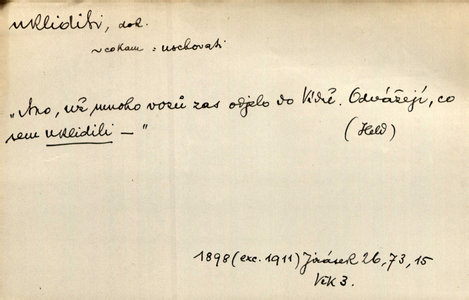 ukliditi, dok.
v cokam : uschovati
„Ano, už mnoho vozů zas odjelo do Vídně. Odvážejí, co
sem uklidili — "
(Held)
1898 (exc. 1911) Jirásek 26, 73, 15
Věk 3.